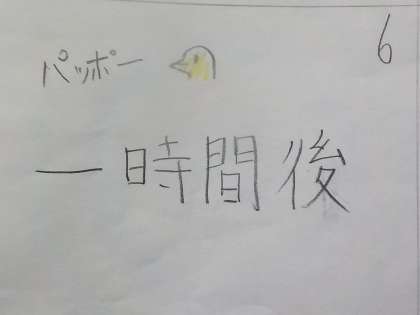 6
パッポー
一時間後